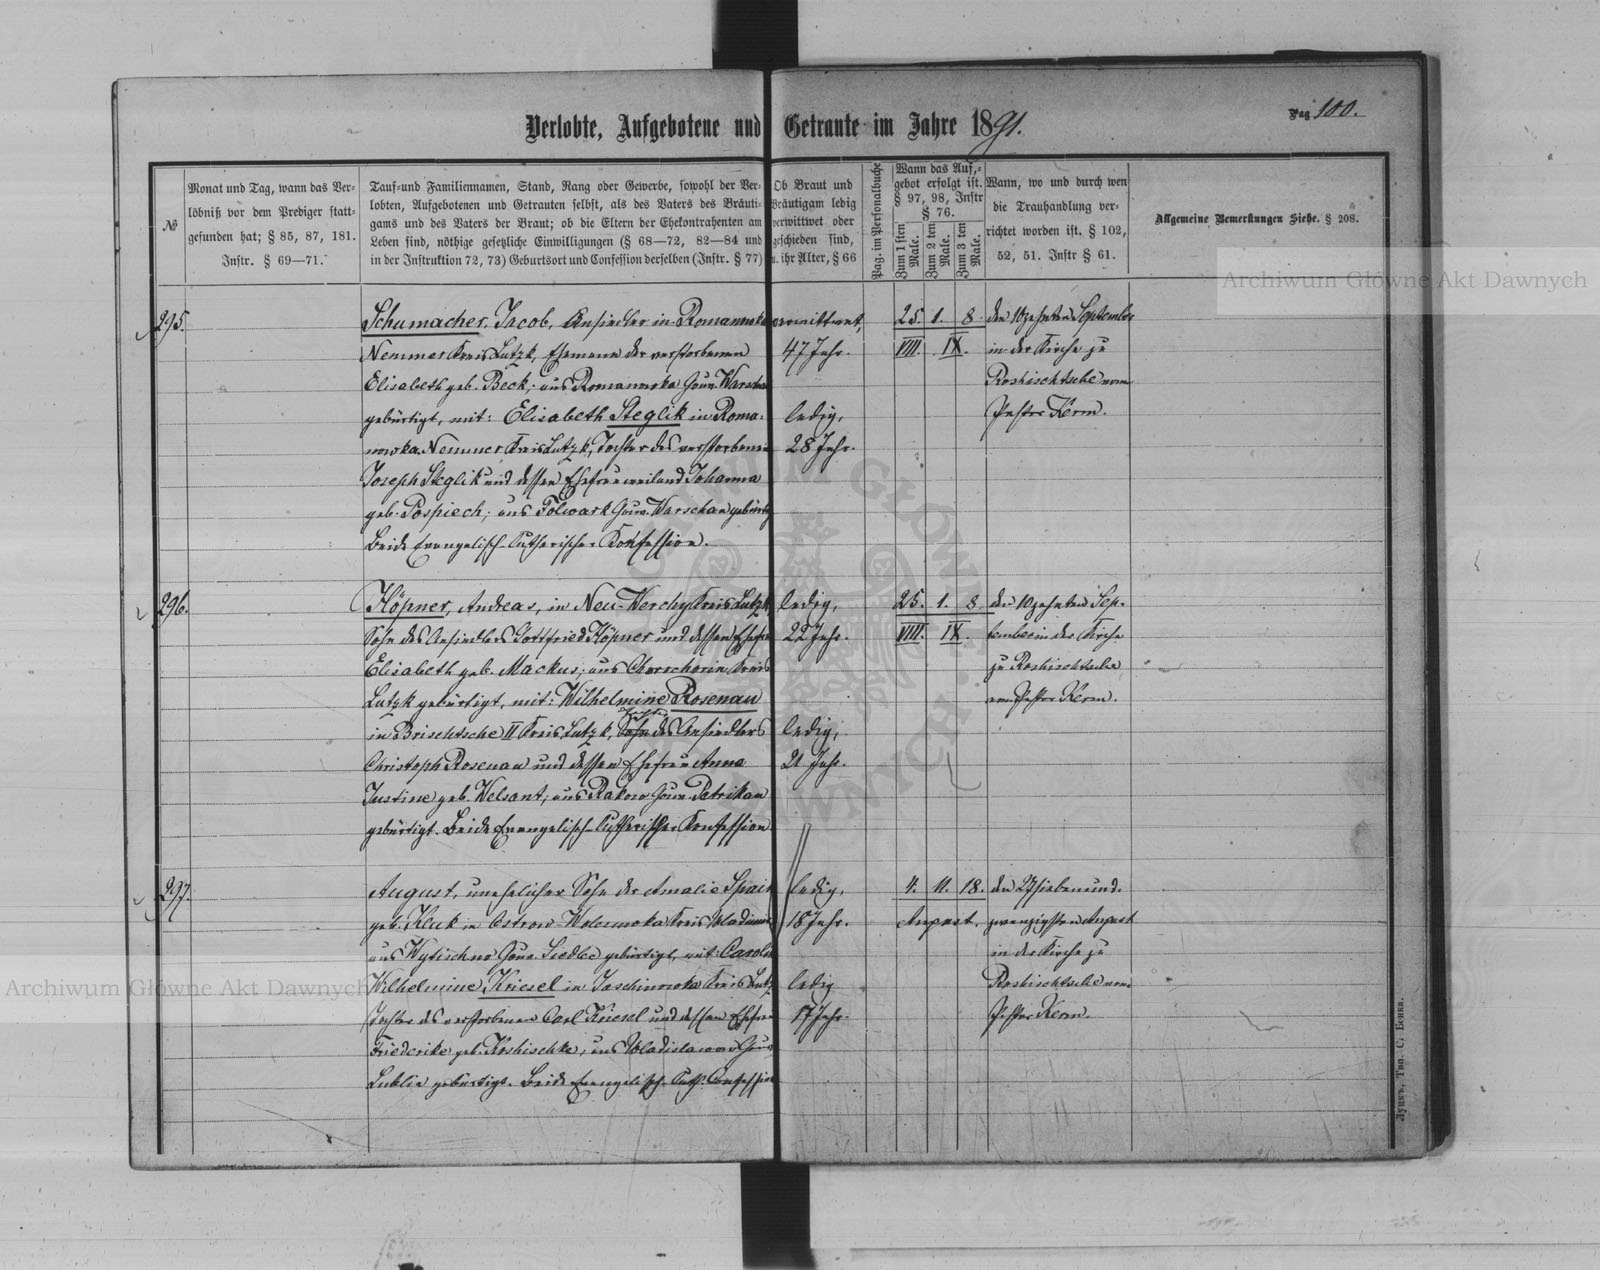 Verlobte, Aufgebotene und Getraute im Jahre 1891.
Pag 100.
№
Monat und Tag, wann das Ver-
löbniß vor dem Prediger statt-
gefunden hat; § 85, 87, 181.
Instr. § 69—71.
Tauf-und Familiennamen, Stand, Rang oder Gewerbe, sowohl der Ver-
lobten, Aufgebotenen und Getrauten selbst, als des Vaters des Bräuti-
gams und des Vaters der Braut; ob die Eltern der Ehekontrahenten am
Leben sind, nöthige gesetzliche Einwilligungen (§ 68—72, 82—84 und
in der Instruktion 72, 73) Geburtsort und Confession derselben (Instr. § 77)
Ob Braut und
Bräutigam ledig
verwittwet oder
geschieden sind,
u. ihr Alter, § 66
Pag. im Personalbuche
Wann das Auf-
gebot erfolgt ist.
§ 97, 98, Instr
§ 76.
Zum 1 sten
Male.
Zum 2 ten
Male.
Zum 3 ten
Male.
Wann, wo und durch wen
die Trauhandlung ver-
richtet worden ist. § 102,
52, 51. Instr § 61.
Allgemeine Bemerkungen Siehe. § 208.
295.
Schumacher, Jacob, Ansiedler in Romanowka
Nemmer Kreis Lutzk, Ehemann der verstorbenen
Elisabeth geb. Beck; aus Romanowka Gouv. Warschau
gebürtigt, mit: Elisabeth Steglik in Roma-
nowka Nemmer Kreis Lutzk, Tochter des verstorbenen
Joseph Steglik und dessen Ehefrau weiland Johanna
geb. Pospiech; aus Folwark Gouv. Warschau gebürtig
Beide Evangelisch-Lutherischer Konfession.
verwittwet,
47 Jahr.
ledig,
28 Jahr.
25. 1. 8.
VIII. IX.
den 10zehnten September
in der Kirche zu
Roshischtsche vom
Pastor Kerm.
296.
Höpner, Andreas, in Neu-Werchy Kreis Lutzk
Sohn des Ansiedlers Gottfried Höpner und dessen Ehefrau
Elisabeth geb. Mackus; aus Chorschorin Kreis
Lutzk gebürtigt, mit: Wilhelmine Rosenau
Tochter
in Brischtsche II Kreis Lutzk, Sohn des Ansiedlers
Christoph Rosenau und dessen Ehefrau Anna
Justine geb. Welsant; aus Rakow Gouv. Petrikau
gebürtigt. Beide Evangelisch-Lutherischer Konfession
ledig,
22 Jahr.
ledig,
21 Jahr.
25. 1. 8.
VIII. IX.
den 10zehnten Sep-
tember in der Kirche
zu Roshischtsche
vom Pastor Kerm.
297.
August, unehelicher Sohn der Amalie Spair
geb. Kluk in Ostrow Kreis Wladimir
aus Wytischno Gouv. Siedlce gebürtigt, mit: Carolin
Wilhelmine Kriesel in Jaschinowka Kreis Lutzk
Tochter des verstorbenen Carl Kriesel und dessen Ehefrau
Friederike geb. Koshischke; aus Wladislawow Gouv
Lublin gebürtigt. Beide Evangelisch-Luth. Confession
ledig,
18 Jahr.
ledig
17 Jahr.
4. 11. 18.
August.
den 27 siebenund-
zwanzigsten August
in der Kirche zu
Roshischtsche vom
Pastor Kerm.
Луцкъ, Тип. С. Бенка.
Archiwum Główne Akt Dawnych
Archiwum Główne Akt Dawnych